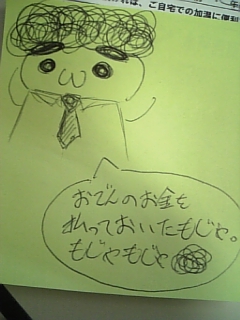 ば、ご自宅での加湿に便利
おでんのお金を
払っておいたもじゃ。
もじゃもじゃ